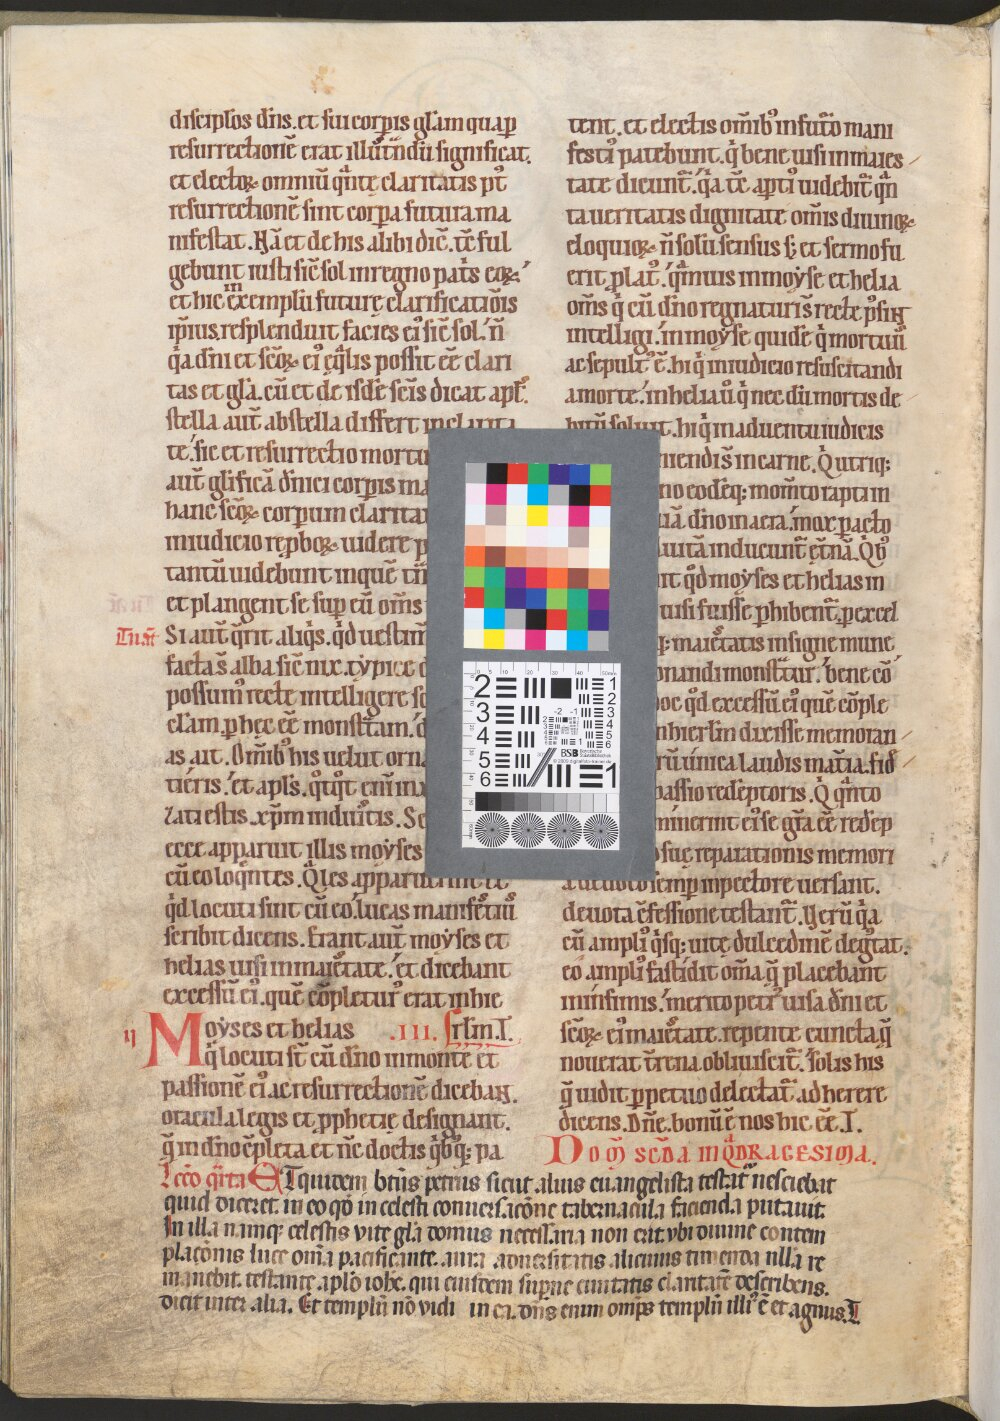 discip̄los dn̄s. et sui corꝑis gl̄am quaꝑ
resurrectionē erat illūīn̄dū significat.
et electoꝝ omniū qn̄tę claritatis pt̄
resurrectionē sint corꝑa futura ma
nifestat. Nā et de his alibi dic̄. tc̄ ful
gebunt iusti sic̄ sol in regno pat̄s eoꝝ
et hic exemplū future clarificatiōis
ip̄ius. resplenduit facies ei᾽ sic̄ sol. n̄
q̄a dn̄i et sc̄oꝝ ei᾽ eq̄lis possit eē clari
tas et gl̄a. cū et de iisdē sc̄is dicat apl̄s.
stella aut̄ ab stella differt in clarita
te. sic et resurrectio mortu
aut̄ glificā dn̄ici corꝑis ma
hanc sc̄oꝝ corꝑum claritat
in iudicio reꝓboꝝ uidere p
tantū uidebunt in quē tn̄
et plangent se suꝑ eū om̄s
Si aut̄ q̄rit aliq̄s. q̄d uestim
facta s̄ alba sic̄ nix. tẏpice
possum᾽ recte intelligere
cl̄am. ꝑ hec eē monst̄tam.
as ait. Om̄ib᾽ his uelut orna
tiēris. et apl̄s. q̄tq̄t enim in
zati estis. xp̄m induistis. Se
ecce apparuit illis moẏses
cū eo loq̄ntes. Q̄les apparuerint et
q̄d locuti sint cū eo. lucas manifesti᾽
scribit dicens. Erant aut̄ moẏses et
helias uisi in maiestate. et dicebant
excessū ei᾽. quē cōpletur᾽ erat in hie
ıȷ Moẏses et helias .III. rl̄m. I.
q̄ locuti st̄ cū dn̄o in monte et
passionē ei᾽ ac resurrectionē dicebaɴ.
oracula legis et ꝓphetię designant.
q̄ in dn̄o cōpleta et nc̄ doctis q̄bꝫq; pa
tent. et electis om̄ib᾽ in futo mani
festi᾽ patebunt. q̄ bene uisi in maies
tate dicunt̄. q̄a tc̄ apti᾽ uidebit̄ qn̄
ta ueritatis dignitate om̄is diuinoꝝ
eloquioꝝ n̄ solū sensus s; et sermo fu
erit plat᾽. q̄muis in moẏse et helia
om̄s q̄ cū dn̄o regnaturi s̄ recte p̄siɴ
intelligi. in moẏse quidē q̄ mortuū
ac sepult᾽ ē. hi q̄ in iudicio resuscitandi
a morte. in helia ū q̄ nec dū mortis de
bitū soluit. hi q̄ in aduentu iudicis
niendi s̄ in carne. Q utriq;
no eodēq; momto rapti in
uiā dn̄o in aera. mox ꝑacto
uitā inducunt̄ et̄nā. Q b᾽
nt q̄d moẏses et helias in
uisi fuisse ꝑhibent̄. ꝑexcel
q; maiestatis insigne mune
onandi monst̄tur. bene cō
oc q̄d excessū ei᾽ quē cōple
n hierl̄m dixisse memoran
rū unica laudis mat̄ia. fid
passio redēptoris. Q qn̄to
minerint ei᾽ se gr̄a eē redēp
suę reparationis memori
a deuoto semꝑ in pectore uersant.
deuota ꝯfessione testant̄. Verū q̄a
cū ampli᾽ q̄sq; uitę dulcedinē degustat.
eo ampli᾽ fastidit om̄a q̄ placebant
in infimis. merito petr᾽ uisa dn̄i et
sc̄oꝝ ei᾽ maiestate. repente cuncta q̄
nouerat t̄rena obliuiscit̄. solis his
q̄ uidit ꝑpetuo delectat̄ adherere
dicens. Dn̄e. bonū ē nos hic eē. I.
Dom̄ scd̄a in q̄dragesima.
Lc̄cō q̄rta Et quidem btūs petrus sicut alius euangelista testat̄ nesciebat
quid diceret. in eo qd̄ in celesti conuersacōne tabernacula facienda putauit.
In illa namq; celestis vite gl̄a domus necessaria non erit. vbi diuine contem
placōnis luce om̄a pacificante. aura aduersitatis alicuius timenda nlla re
manebit. testante aplō ioh̄e. qui eiusdem suꝑne ciuitatis claritatē describens.
dicit inter alia. Et templū nō vidi in ea. dn̄s enim omp̄s templū illi᾽ ē et agnus. T
2
3
4
5
6
1
2
3
4
5
6
BSB
1